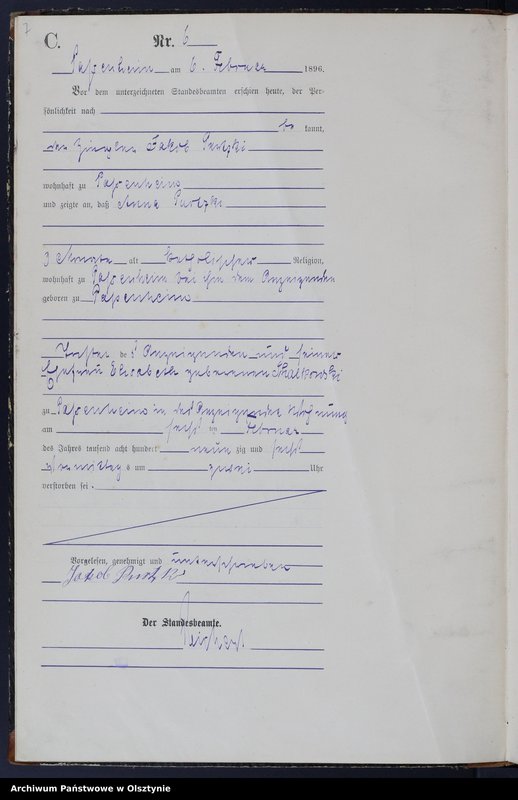 7
C.
Nr. 6
am 6. Februar 1896.
Vor dem unterzeichneten Standesbeamten erschien heute, der Per-
sönlichkeit nach
be kannt,
der Jakob
wohnhaft zu
und zeigte an, daß Anna
3 Monate alt katholischer Religion,
wohnhaft zu bei ihm dem Anzeigenden
geboren zu
Tochter des Anzeigenden und seiner
Ehefrau Elisabeth geborenen
zu in des Anzeigenden Wohnung
am sechsten Februar
des Jahres tausend acht hundert neun zig und sechs
Vormittags um zwei Uhr
verstorben sei.
Vorgelesen, genehmigt und unterschrieben
Jakob
Der Standesbeamte.
Archiwum Państwowe w Olsztynie